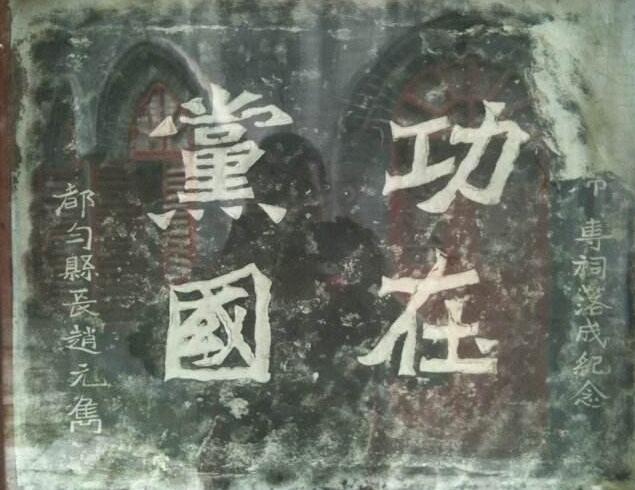 專祠落成紀念
功在
黨國
都勻縣長趙元雋